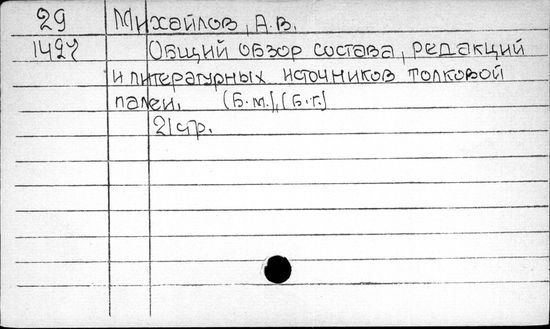 29 Михайлов, А.В.
1427 Общий обзор состава, редакций
и литературных источников толковой
палеи. [Б.м.], [Б.г.]
21 стр.